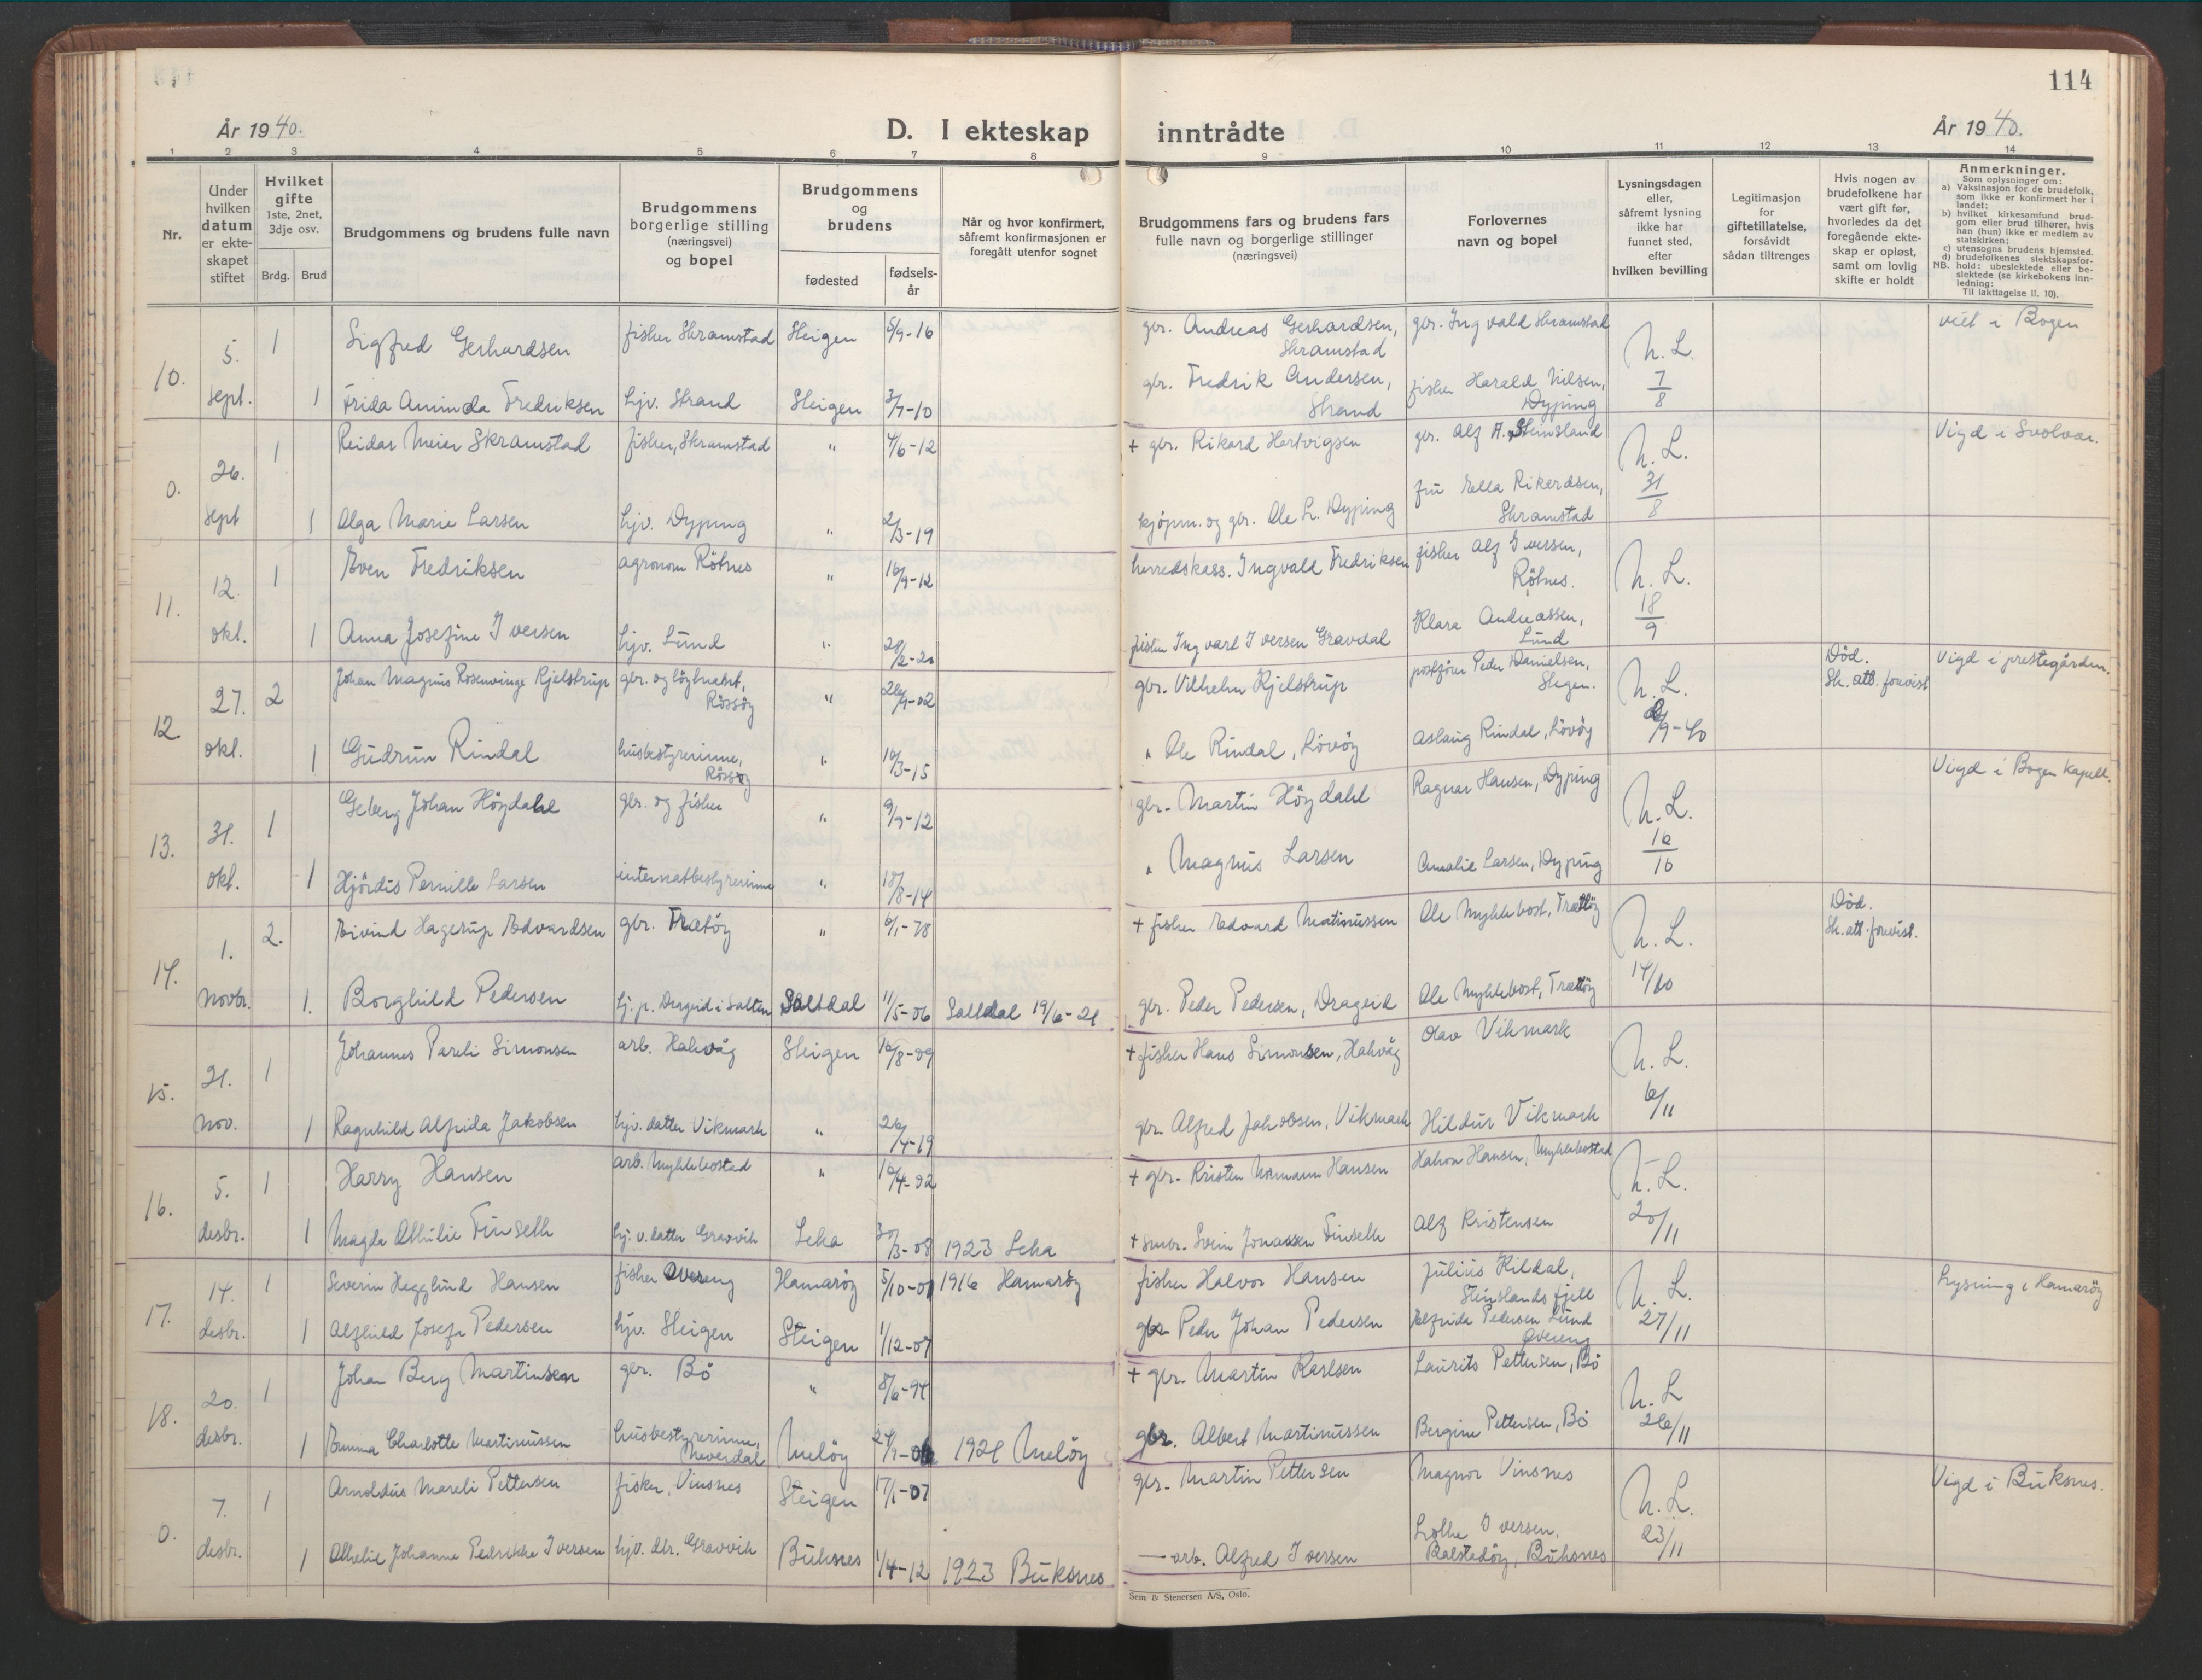 114
År 1940.
D. I ekteskap inntrådte
År 1940.
1 2 3 4 5 6 7 8 9 10 11 12 13 14
Nr.
Under hvilken datum er ekteskapet stiftet
Hvilket gifte 1ste, 2net, 3dje osv.
Brdg. Brud
Brudgommens og brudens fulle navn
Brudgommens borgerlige stilling (næringsvei) og bopel
Brudgommens og brudens
fødested
fødselsår
Når og hvor konfirmert, såfremt konfirmasjonen er foregått utenfor sognet
Brudgommens fars og brudens fars fulle navn og borgerlige stillinger (næringsvei)
Forlovernes navn og bopel
Lysningsdagen eller, såfremt lysning ikke har funnet sted, efter hvilken bevilling
Legitimasjon for giftetillatelse, forsåvidt sådan tiltrenges
Hvis nogen av brudefolkene har vært gift før, hvorledes da det foregående ekteskap er opløst, samt om lovlig skifte er holdt
Anmerkninger.
Som oplysninger om:
a) Vaksinasjon for de brudefolk, som ikke er konfirmert her i landet;
b) hvilket kirkesamfund brudgom eller brud tilhører, hvis han (hun) ikke er medlem av statskirken;
c) utensogns brudens hjemsted.
d) brudefolkenes slektskapsforhold: ubeslektede eller beslektede (se kirkebokens innledning:
NB. Til iakttagelse II, 10).
10. 5. 1 Sigfred Gerhardsen fisker Skramstad Steigen 5/9-16 gbr. Andreas Gerhardsen, Skramstad gbr. Ingvald Skramstad N.L. viet i Bogen
sept. 1 Frida Aminda Fredriksen hjv. Strand Steigen 3/7-10 gbr. Fredrik Andersen, Strand fisker Harald Nilsen, Dyping 7/8
0. 26. 1 Reidar Meier Skramstad fisker, Skramstad " 4/6-12 + gbr. Rikard Hartvigsen gbr. Alf A. Steinsland N.L. Vigd i Svolvær.
sept 1 Olga Marie Larsen hjv. Dyping " 2/3-19 kjøpm. og gbr. Ole L. Dyping fru Ella Rikardsen, Skramstad 31/8
11. 12. 1 Even Fredriksen agronom Rötnes " 16/9-12 herredskass. Ingvald Fredriksen fisker Alf Iversen, Rötnes. N.L.
okt. 1 Anna Josefine Iversen hjv. Lund " 28/2-20 fisker Ingvart Iversen Gravdal Klara Andreassen, Lund 18/9
12. 27. 2 Johan Magnus Rosenvinge Kjelstrup gbr. og löytnant, Rössöy " 26/9-02 gbr. Vilhelm Kjelstrup postfører Peder Danielsen, Steigen. N.L. Död. Sk. att. forevist Vigd i prestegården.
okt. 1 Gudrun Rindal husbestyrerinne, Rössöy " 16/3-15 " Ole Rindal, Lövöy Aslaug Rindal, Lövöy /9-40
13. 31. 1 Geberg Johan Höydahl gbr. og fisker " 9/9-12 gbr. Martin Höydahl Ragnar Hansen, Dyping N.L. Vigd i Bogen kapell.
okt. 1 Hjördis Pernille Larsen internatbestyrerinne " 18/8-14 " Magnus Larsen Amalie Larsen, Dyping 16/10
14. 1. 2. Eivind Hagerup Edvardsen gbr. Trætöy " 6/1-78 + fisker Edvard Martinussen Ole Myklebost, Trættöy N.L. Död. Sk. att. forevist.
novbr. 1. Borghild Pedersen hj. p. Drageid i Salten Saltdal 11/5-06 Saltdal 19/6-21 gbr. Peder Pedersen, Drageid Ole Myklebost, Trættöy 14/10
15. 21. 1 Johannes Pareli Simonsen arb. Holkvåg Steigen 16/8-09 + fisker Hans Simonsen, Holkvåg Olav Vikmark N.L.
nov. 1 Ragnhild Alfrida Jakobsen hjv. datter Vikmark " 26/4-19 gbr. Alfred Jakobsen, Vikmark Hildur Vikmark 6/11
16. 5. 1 Harry Hansen arb. Myklebostad " 10/4-92 + gbr. Kristen Normann Hansen Håkon Hansen, Myklebostad N.L.
desbr. 1 Magda Othilie Finseth hj. v. datter Gravvik Leka 30/3-08 1923 Leka + smbr. Svein Jonassen Finseth Alf Kristensen 20/11
17. 14. 1 Severin Hegglund Hansen fisker Övereng Hamaröy 5/10-01 1916 Hamaröy fisker Halvor Hansen Julius Kildal, Steinslandsfjell N.L. Lysning i Hamaröy
desbr. 1 Alfhild Josefa Pedersen hjv. Steigen Steigen 1/12-07 gbr. Peder Johan Pedersen Alfrida Pedersen Lund Övereng 27/11
18. 20. 1 Johan Berg Martinsen gbr. Bö " 8/6-94 + gbr. Martin Karlsen Laurits Pettersen, Bö N.L
desbr. 1 Emma Charlotte Martinussen husbestyrerinne, Neverdal Melöy 24/9-06 1921 Melöy gbr. Albert Martinussen Bergine Pettersen, Bö 26/11
0. 7. 1 Arnoldus Mareli Pettersen fisker, Vinsnes Steigen 17/1-07 gbr. Martin Pettersen Magnor Vinsnes N.L. Vigd i Buksnes.
desbr. 1 Othelie Johanne Pedrikke Iversen hjv. dtr. Gravvik Buksnes 1/4-12 1923 Buksnes — arb. Alfred Iversen Lothe Iversen, Balstadöy, Buksnes 23/11
Sem & Stenersen A/S, Oslo.